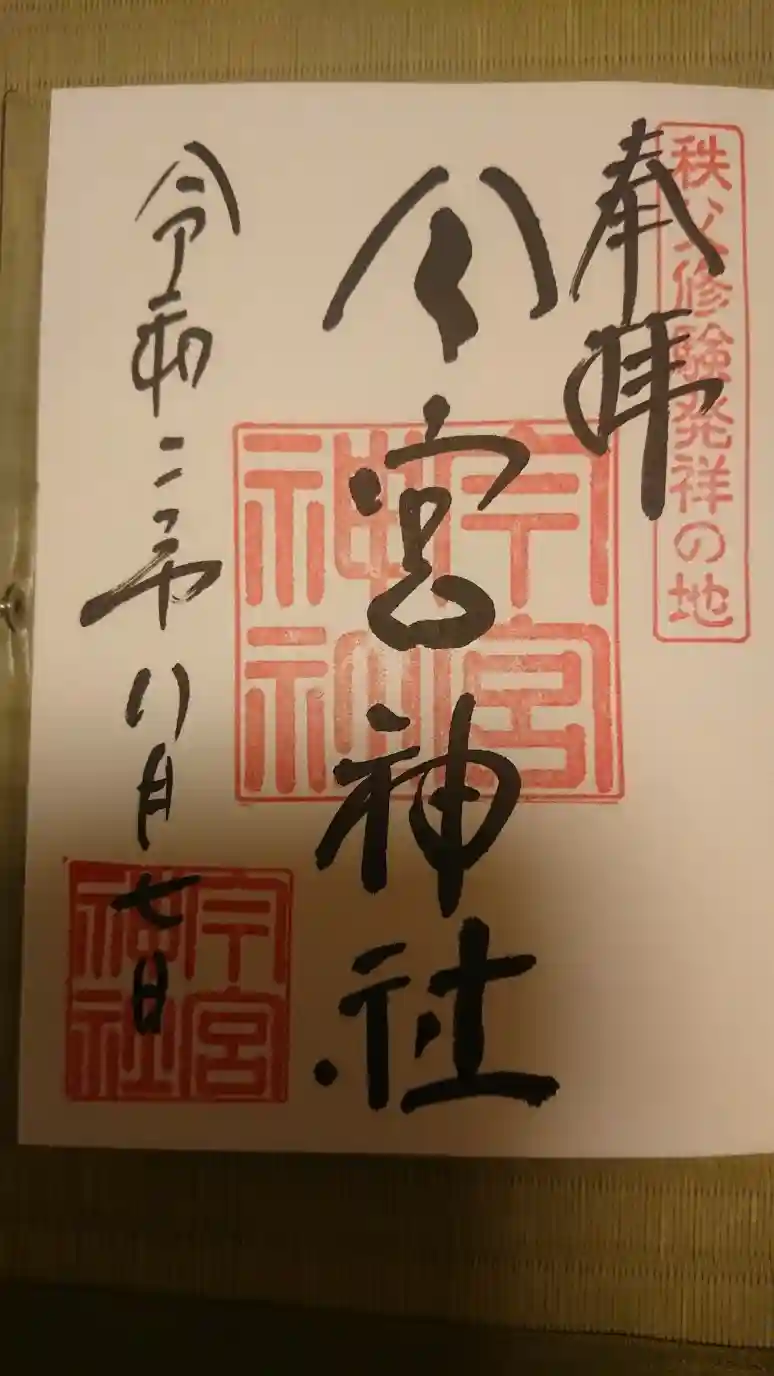 秩父修験発祥の地
奉拝
今宮神社
今宮
神社
令和二年八月七日
今宮
神社